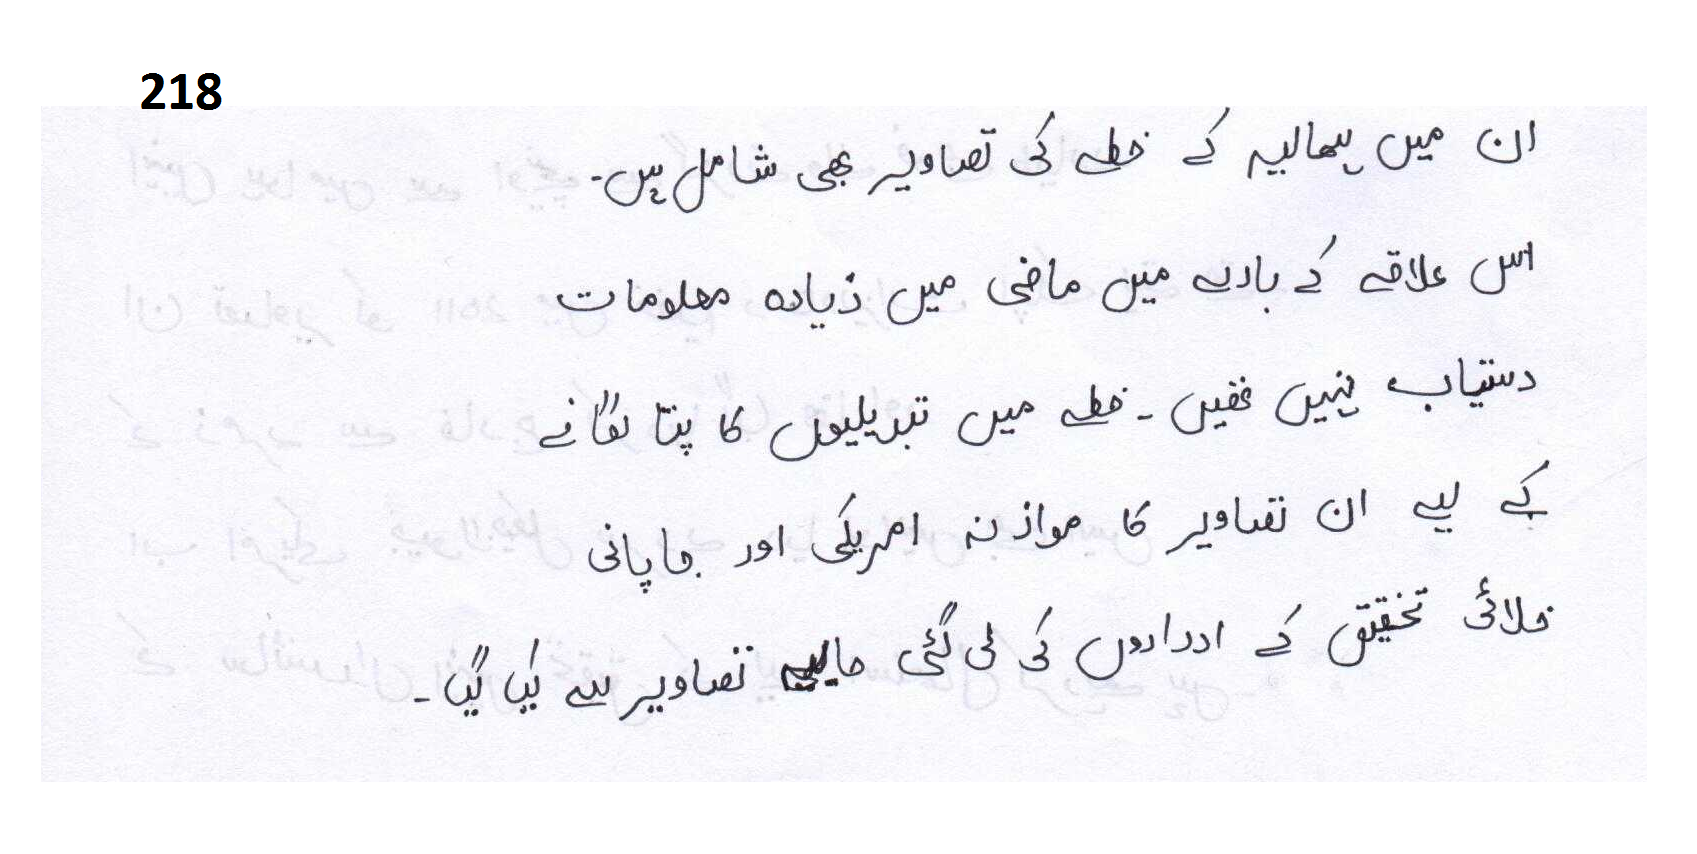 218
ان میں ہمالیہ کے خطے کی تصاویر بھی شامل ہیں۔
اس علاقے کے بارے میں ماضی میں زیادہ معلومات
دستیاب نہیں تھیں۔ خطے میں تبدیلیوں کا پتا لگانے
کے لیے ان تصاویر کا موازنہ امریکی اور جاپانی
خلائی تحقیق کے اداروں کی لی گئی حالیہ تصاویر سے کیا گیا۔